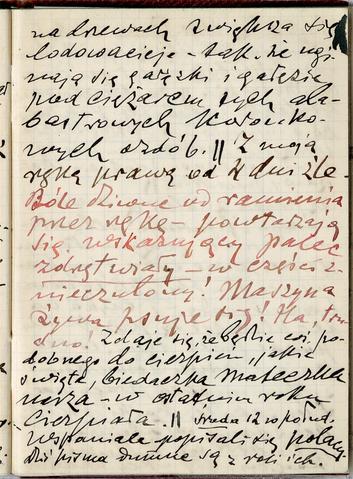 na drzewach zwiększa się
lodowacieje - tak, że ugi-
nają się gałązki i gałęzie
pod ciężarem tych ala-
bastrowych koronko-
wych ozdób. || Z moją
ręką prawą od 4 dni źle -
Bóle dziwne od ramienia
przez rękę - powtarzają
się, wskazujący palec
zdrętwiały - w części z-
nieczulony! Maszyna
żywa psuje się! Ha, tru-
dno! Zdaje się, że będzie coś po-
dobnego do cierpień, jakie
święta, biedaczka Mateczka
nasza - w ostatnim roku
cierpiała. || Środa 12 w połud.
Wspaniale popisali się polacy.
Dziś pisma dumne są z roli ich.